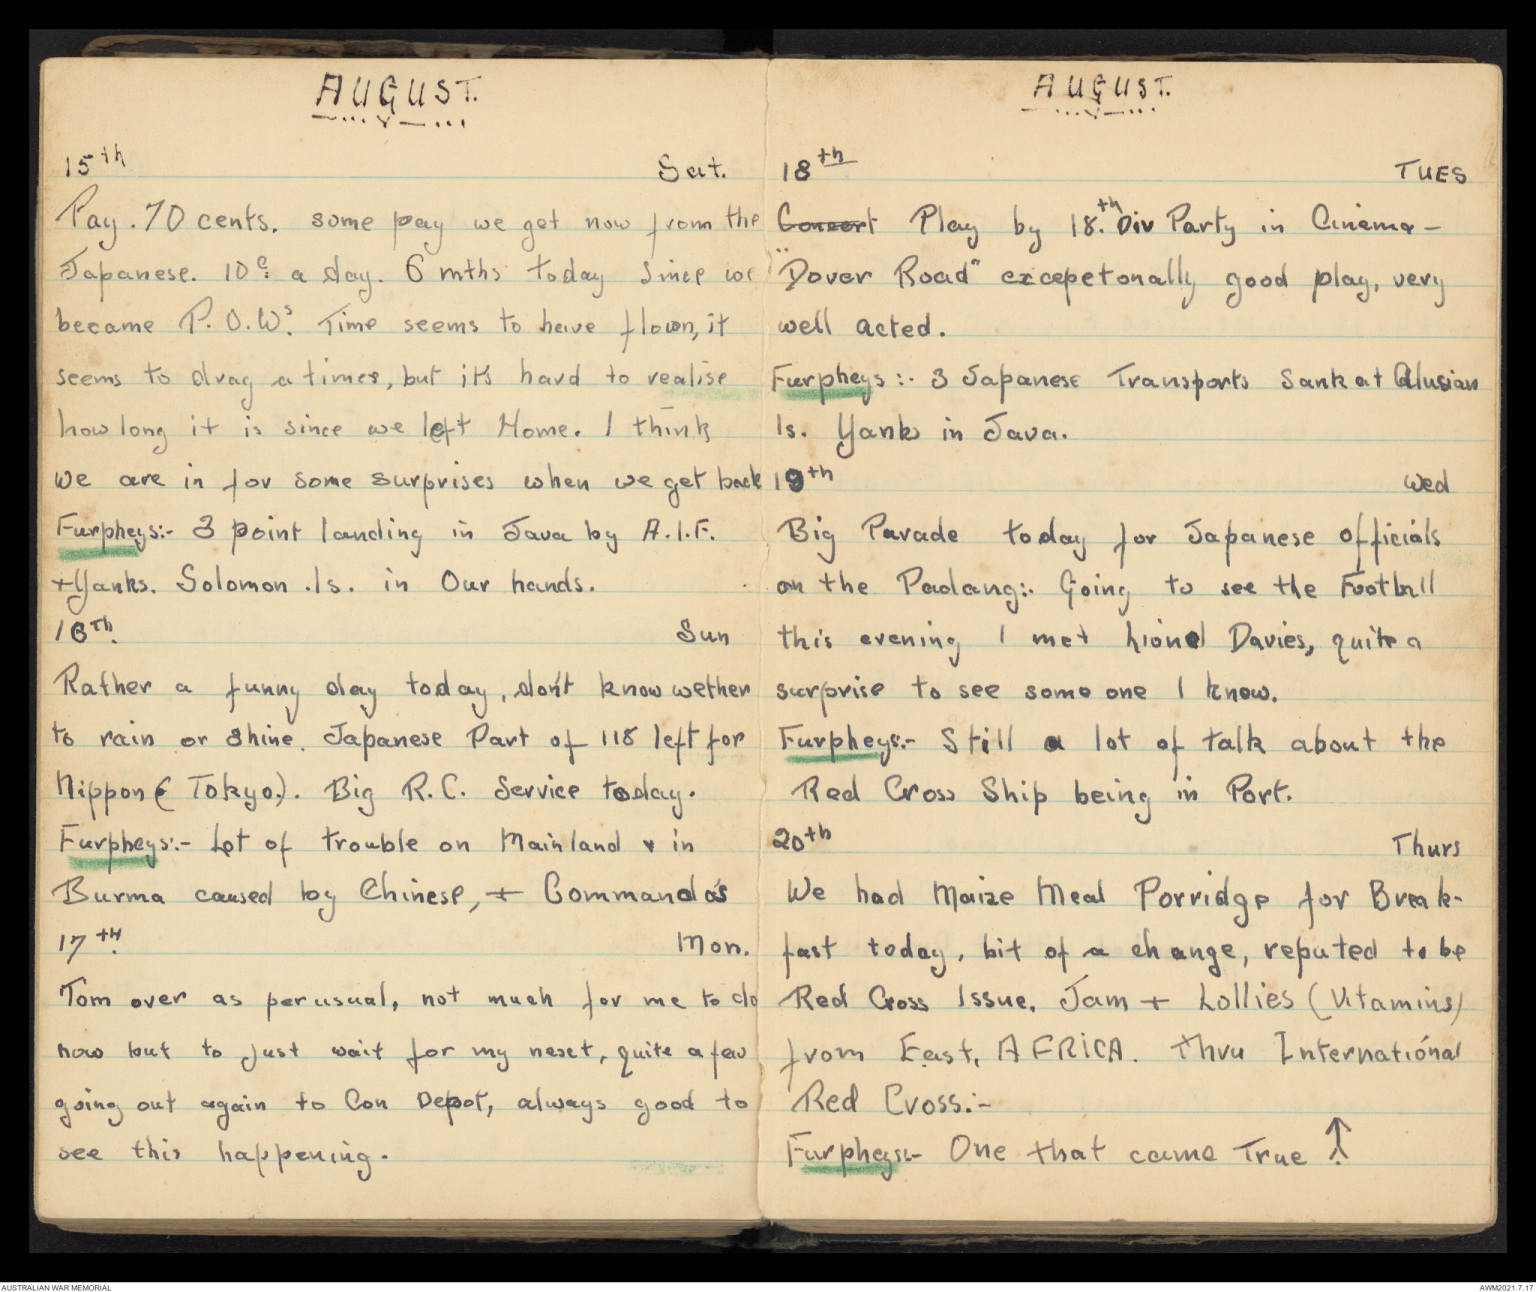 AUGUST.
15th Sat.
Pay. 70 cents. some pay we get now from the
Japanese. 10c a day. 6 mths today since we
became P.O.Ws. Time seems to have flown, it
seems to drag a times, but its hard to realise
how long it is since we left Home. I think
we are in for some surprises when we get back
Furpheys:- 3 point landing in Java by A.I.F.
+ Yanks. Solomon .Is. in Our hands.
16Th. Sun
Rather a funny day today, don't know wether
to rain or shine. Japanese Part of 118 left for
Nippon (Tokyo.). Big R.C. Service today.
Furpheys:- Lot of trouble on Mainland & in
Burma caused by Chinese, + Commando's
17TH. Mon.
Tom over as per usual, not much for me to do
now but to just wait for my next, quite a few
going out again to Con Depot, always good to
see this happening.
AUGUST.
18th TUES
Concert Play by 18.th Div Party in Cinema -
"Dover Road" excepetonally good play, very
well acted.
Furpheys:- 3 Japanese Transports Sank at Alusian
Is. Yanks in Java.
19th Wed
Big Parade today for Japanese officials
on the Padang:. Going to see the Football
this evening I met Lionel Davies, quite a
surprise to see some one I know.
Furpheys:- Still a lot of talk about the
Red Cross Ship being in Port.
20th Thurs
We had Maize Meal Porridge for Break-
fast today, bit of a change, reputed to be
Red Cross Issue, Jam + Lollies (Vitamins)
from East, AFRICA. Thru International
Red Cross:-
Furpheys:- One that came True ↑
AUSTRALIAN WAR MEMORIAL AWM2021.7.17